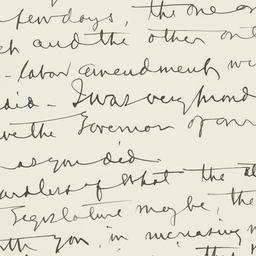 few days, the one
ch and the other
- labor amendment,
did - I was very proud
the Governor of our
as you did.
of what the
Legislature may be, the
with you, in increasing